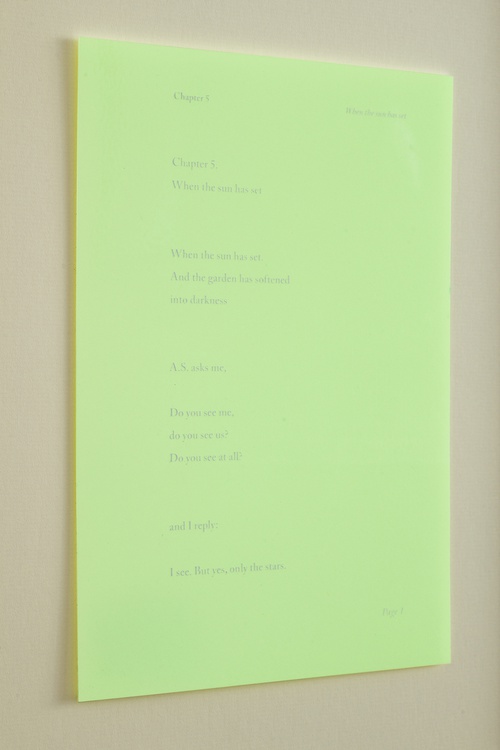 Chapter 5
When the sun has set
Chapter 5,
When the sun has set
When the sun has set.
And the garden has softened
into darkness
A.S. asks me,
Do you see me,
do you see us?
Do you see at all?
and I reply:
I see. But yes, only the stars.
Page 1